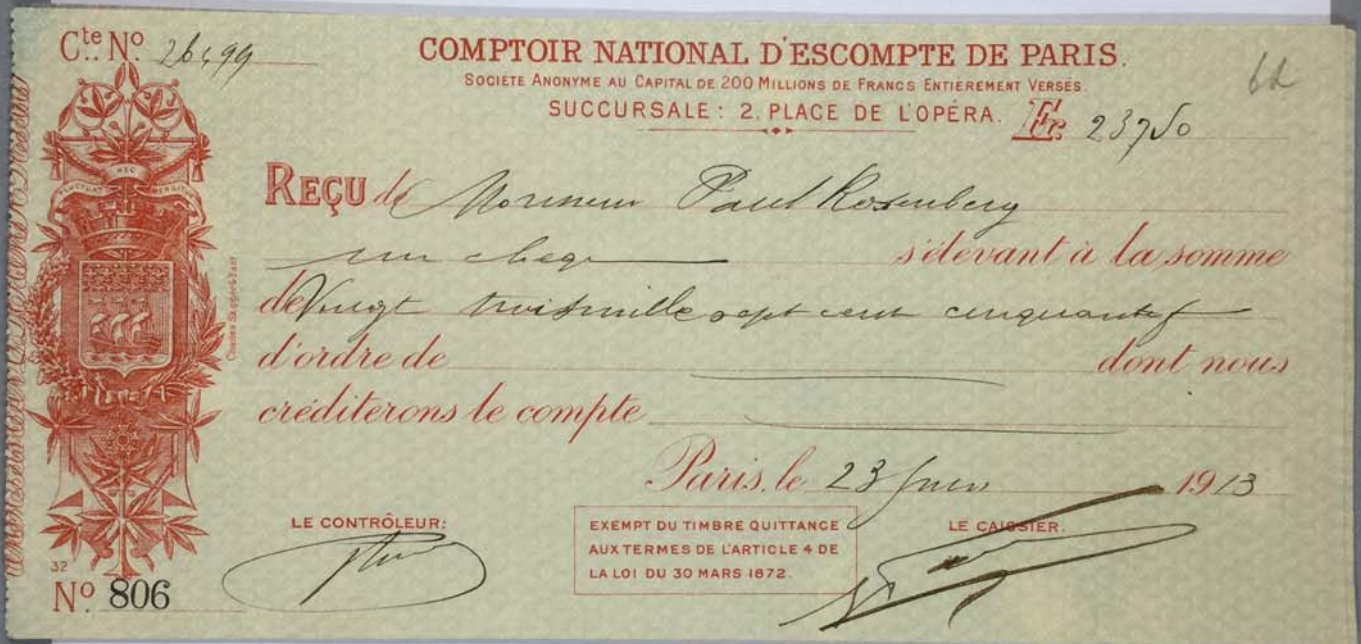 Cte No 26499
COMPTOIR NATIONAL D'ESCOMPTE DE PARIS.
62
SOCIÉTÉ ANONYME AU CAPITAL DE 200 MILLIONS DE FRANCS ENTIÈREMENT VERSÉS.
SUCCURSALE: 2, PLACE DE L'OPÉRA. Fr. 23750
FLUCTUAT NEC MERGITUR
REÇU de Monsieur Paul Rosenberg
un chèque s'élevant à la somme
de Vingt trois mille sept cent cinquante f
d'ordre de dont nous
créditerons le compte
Paris, le 23 Juin 1913
LE CONTRÔLEUR:
EXEMPT DU TIMBRE QUITTANCE
AUX TERMES DE L'ARTICLE 4 DE
LA LOI DU 30 MARS 1872.
LE CAISSIER.
32
No 806